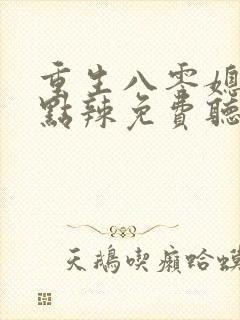 重生八零媳
點辣免費聽
天鵝喫癩蛤蟆